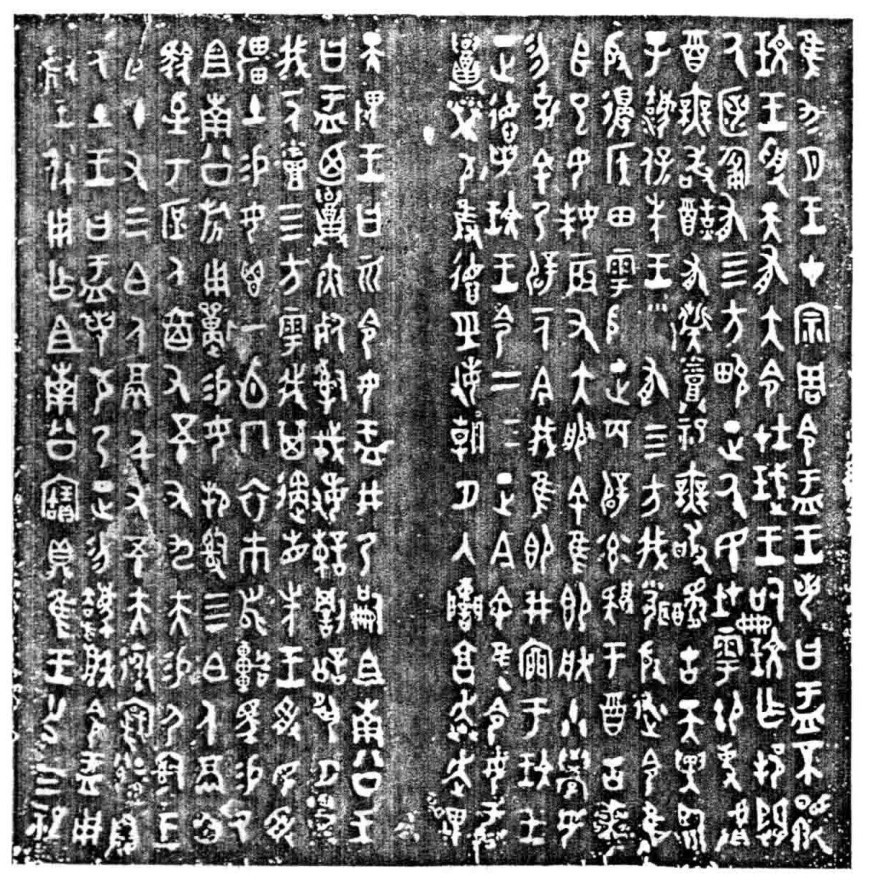 隹九月王才宗周令盂王若曰盂不顯
玟王受天有大令在珷王嗣玟乍邦闢
厥匿匍有四方畯正厥民在雩御事𠭯
酉無敢酖有祡烝祀無敢醻古天異臨
子法保先王有四方我聞殷述令隹
殷邊侯田雩殷正百辟率肄于酉古喪
師已女妹辰又大服余隹即朕小學女
勿克余乃辟一人今我隹即井廩于玟王
正德若玟王令二三正今余隹令女盂
召榮敬雍德巠敏朝夕入讕享奔走畏
天畏王曰而令女盂井乃嗣且南公王
曰盂廼召夾死司戎敏諫罰訟夙夕召
我一人烝四方雩我其遹省先王受民受
疆土易女鬯一卣冂衣巿舄車馬易乃
且南公旂用狩易女邦司四白人鬲自
馭至于庶人六百又五十又九夫易尸司王
臣十又三白人鬲千又五十夫遷自
厥土王曰盂若敬乃正勿廢朕令盂用
對王休用乍且南公寶鼎隹王廿又三祀